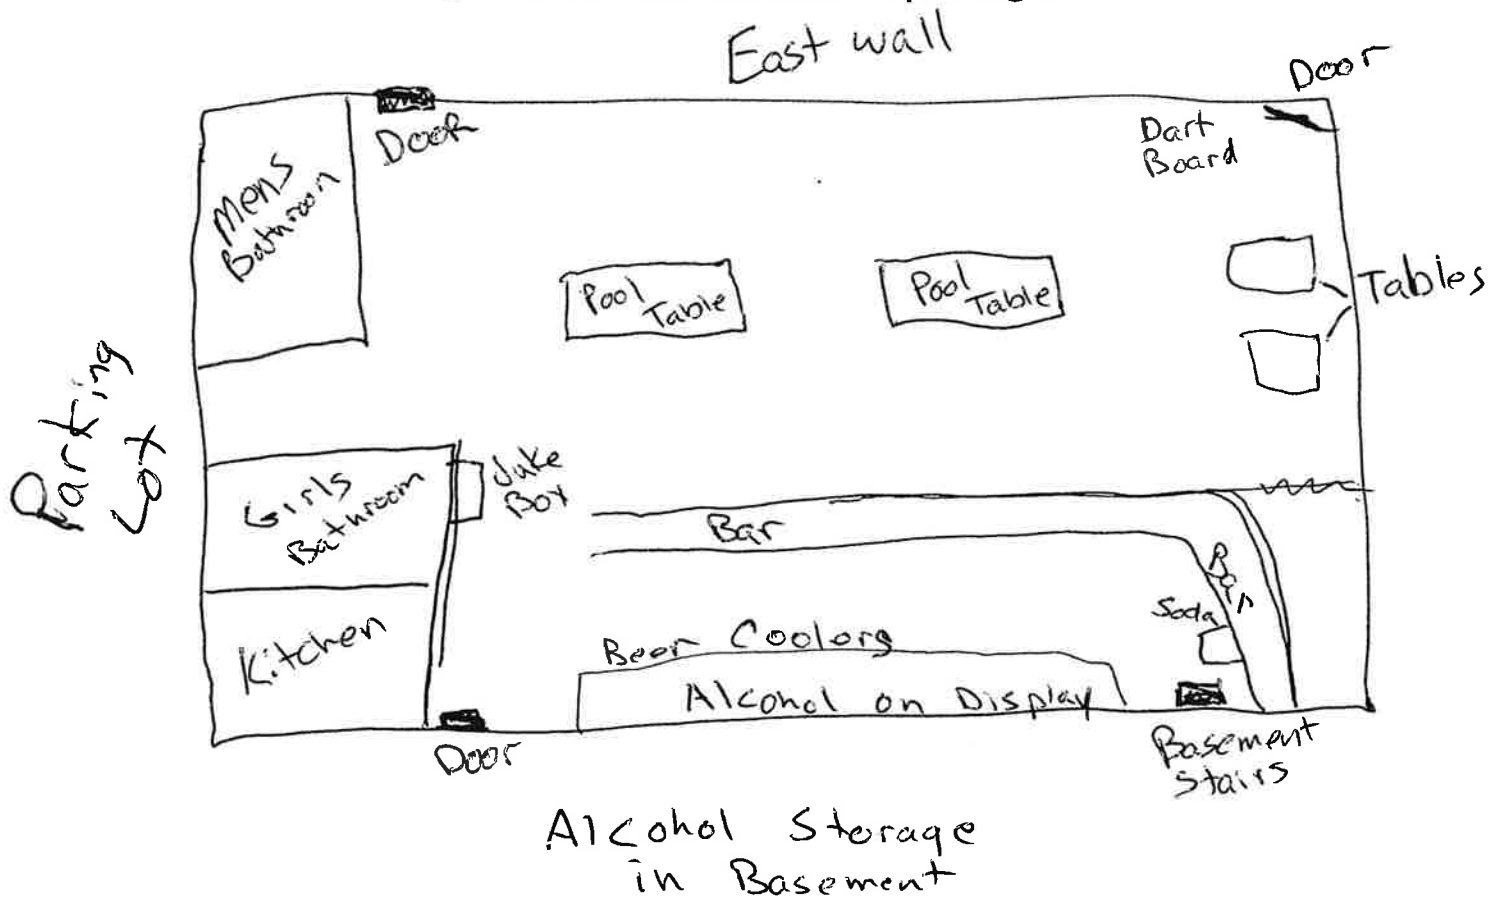 East wall
Door
Door
Dart
Board
Mens
Bathroom
Pool
Table
Pool
Table
Tables
Parking
Lot
Girls
Bathroom
Juke
Box
Bar
Bar
Soda
Kitchen
Beer Coolers
Alcohol on Display
Door
Basement
Stairs
Alcohol Storage
in Basement